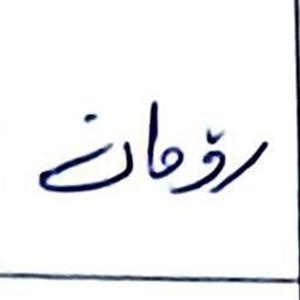 رۆمان